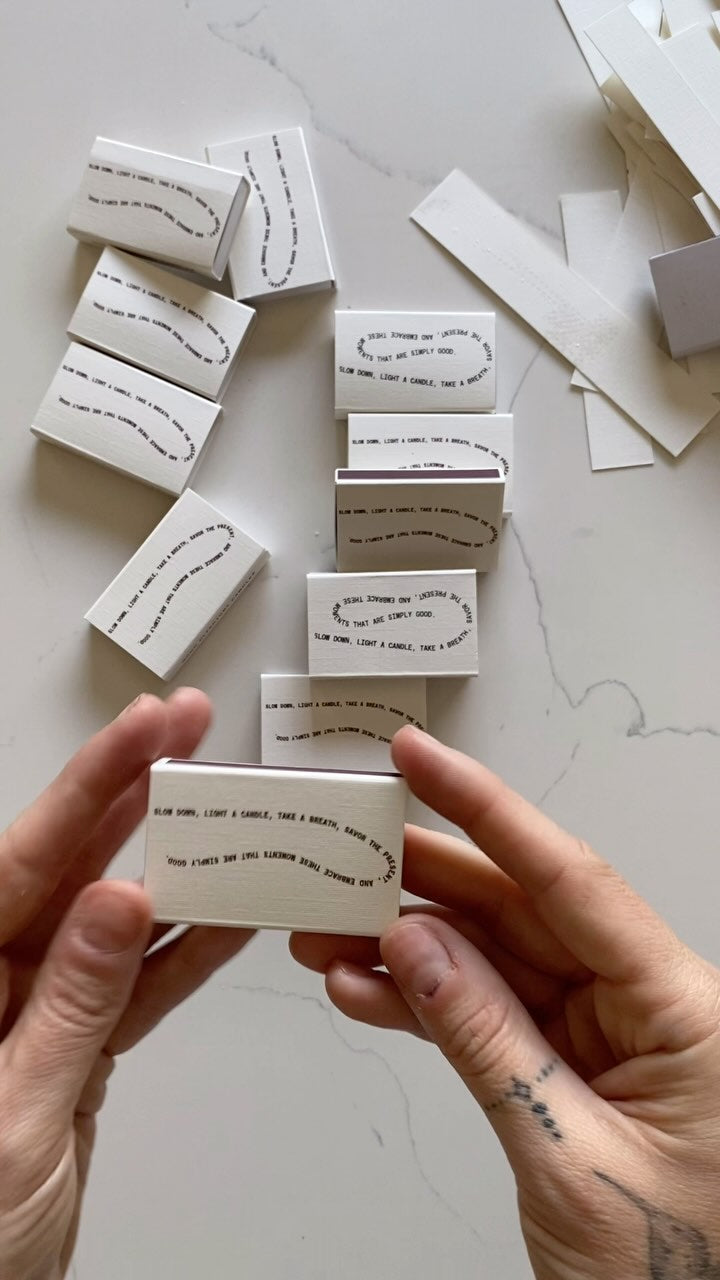 SLOW DOWN, LIGHT A CANDLE, TAKE A BREATH, SAVOR THE PRESENT, AND EMBRACE THESE MOMENTS THAT ARE SIMPLY GOOD.
SLOW DOWN, LIGHT A CANDLE, TAKE A BREATH, SAVOR THE PRESENT, AND EMBRACE THESE MOMENTS THAT ARE SIMPLY GOOD.
SLOW DOWN, LIGHT A CANDLE, TAKE A BREATH, SAVOR THE PRESENT, AND EMBRACE THESE MOMENTS THAT ARE SIMPLY GOOD.
SLOW DOWN, LIGHT A CANDLE, TAKE A BREATH, SAVOR THE PRESENT, AND EMBRACE THESE MOMENTS THAT ARE SIMPLY GOOD.
SLOW DOWN, LIGHT A CANDLE, TAKE A BREATH, SAVOR THE PRESENT, AND EMBRACE THESE MOMENTS THAT ARE SIMPLY GOOD.
SLOW DOWN, LIGHT A CANDLE, TAKE A BREATH, SAVOR THE PRESENT, AND EMBRACE THESE MOMENTS THAT ARE SIMPLY GOOD.
SLOW DOWN, LIGHT A CANDLE, TAKE A BREATH, SAVOR THE
SLOW DOWN, LIGHT A CANDLE, TAKE A BREATH, SAVOR THE PRESENT, AND EMBRACE THESE MOMENTS THAT ARE SIMPLY GOOD.
SLOW DOWN, LIGHT A CANDLE, TAKE A BREATH, SAVOR THE PRESENT, AND EMBRACE THESE MOMENTS THAT ARE SIMPLY GOOD.
SLOW DOWN, LIGHT A CANDLE, TAKE A BREATH, SAVOR THE THESE MOMENTS THAT ARE SIMPLY GOOD.
SLOW DOWN, LIGHT A CANDLE, TAKE A BREATH, SAVOR THE PRESENT, AND EMBRACE THESE MOMENTS THAT ARE SIMPLY GOOD.